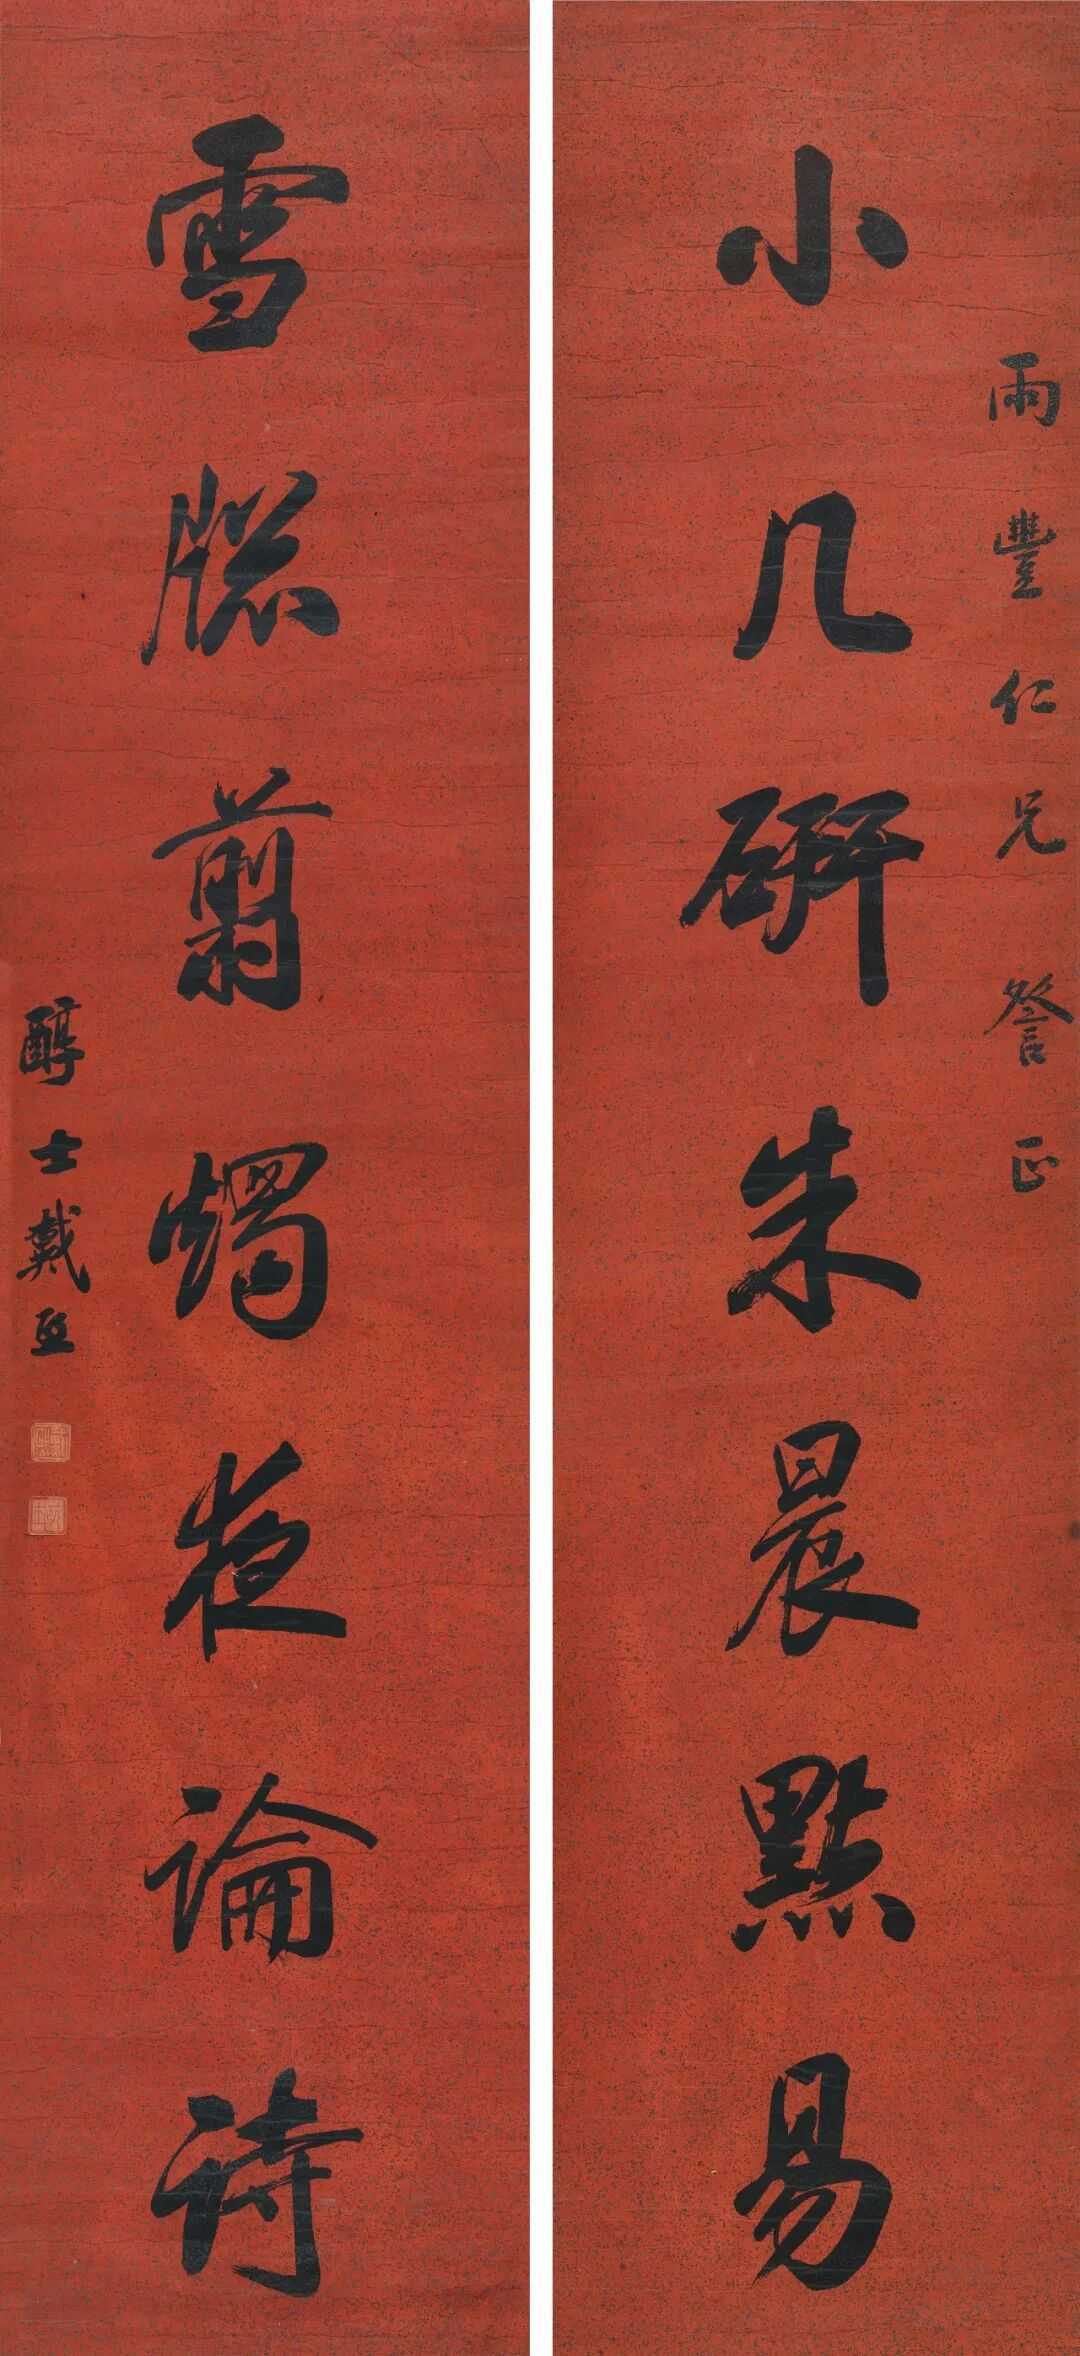 雨豐仁兄詧正
小几研朱晨點易
雪牕翦燭夜論詩
醇士戴熙